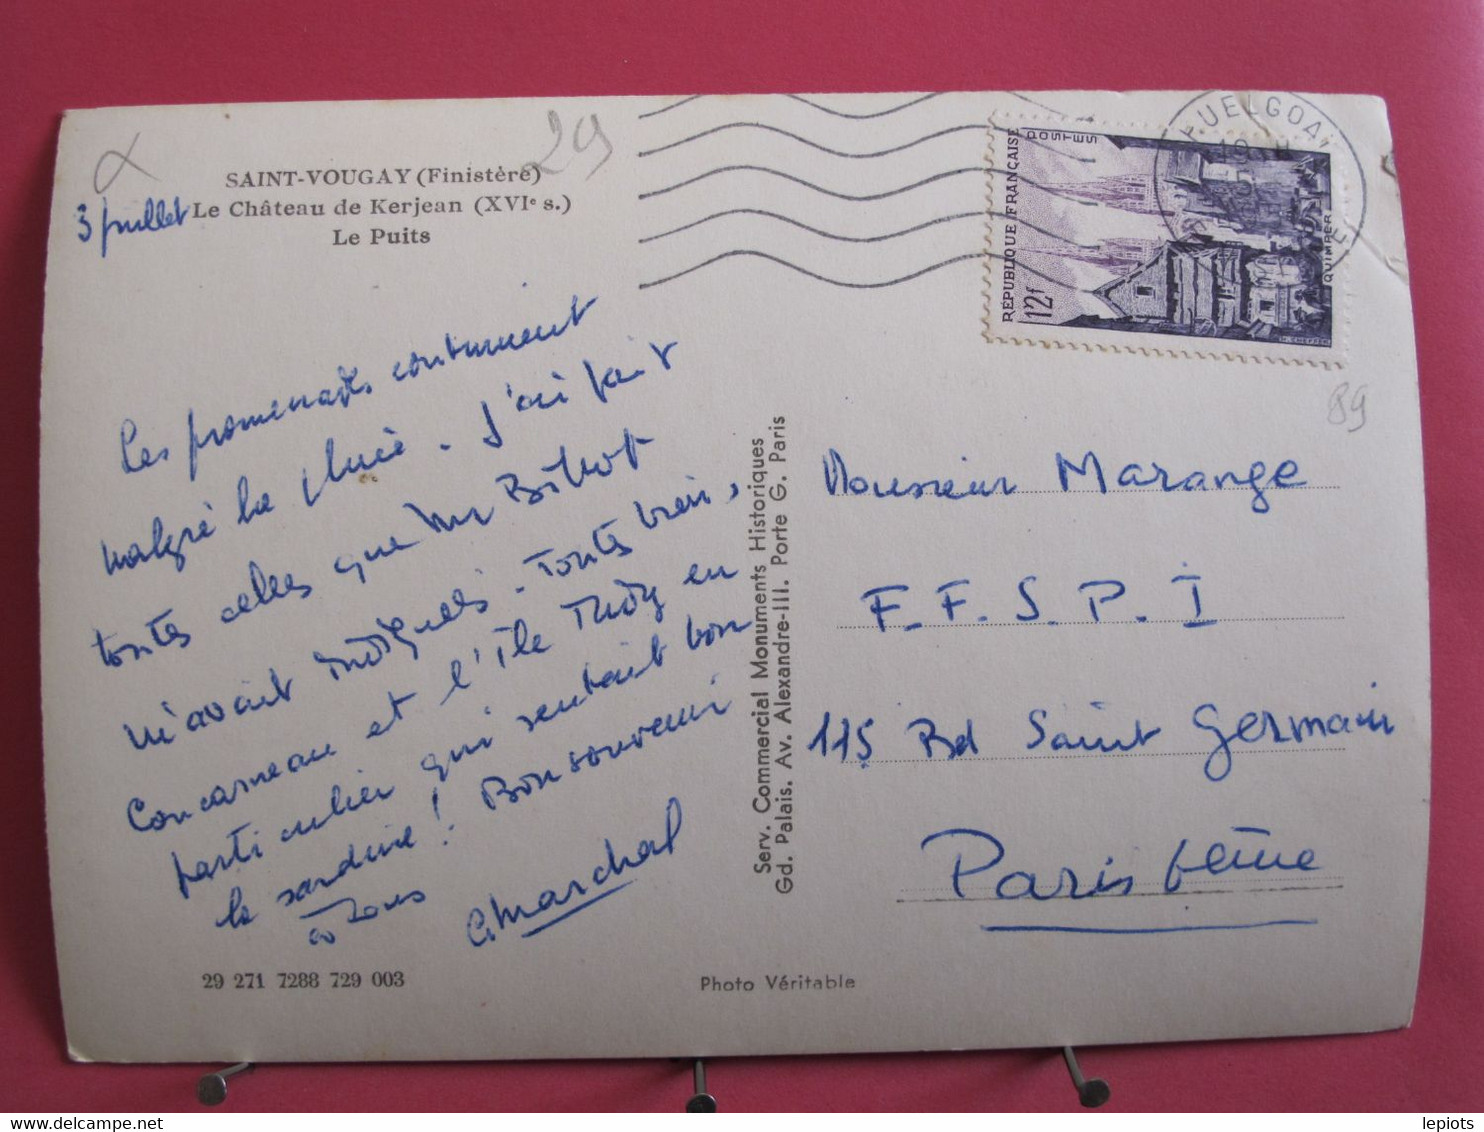 29
SAINT-VOUGAY (Finistère)
3 juillet
Le Château de Kerjean (XVIe s.)
Le Puits
Les promenades continuent
malgré la pluie. J'ai fait
toutes celles que Mr Bihot
m'avait indiquées. Toutes bien,
Concarneau et l'île Tudy en
particulier qui sentait bon
la sardine! Bon souvenir
à tous
G Marchal
29 271 7288 729 003
Photo Véritable
Serv. Commercial Monuments Historiques
Gd. Palais. Av. Alexandre-III. Porte G. Paris
HUELGOAT
RÉPUBLIQUE FRANÇAISE
POSTES
12f
QUIMPER
89
Monsieur Marange
F.F.S.P.I
115 Bd Saint Germain
Paris 6ème
lepiots